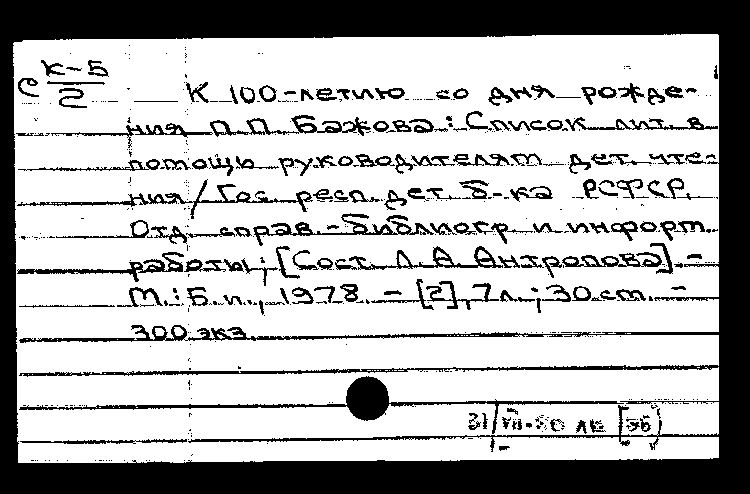 С К-5/2
К 100-летию со дня рожде-
ния П.П. Бажова: Список лит. в
помощь руководителям дет. чте-
ния / Гос. респ. дет. б-ка РСФСР,
Отд. справ.-библиогр и информ.
работы; [Сост. Л. А. Антропова]. -
М.: Б. и., 1978. - [2], 7 л.; 30 см. -
300 экз.
31/VII-80 ЛБ [эб]